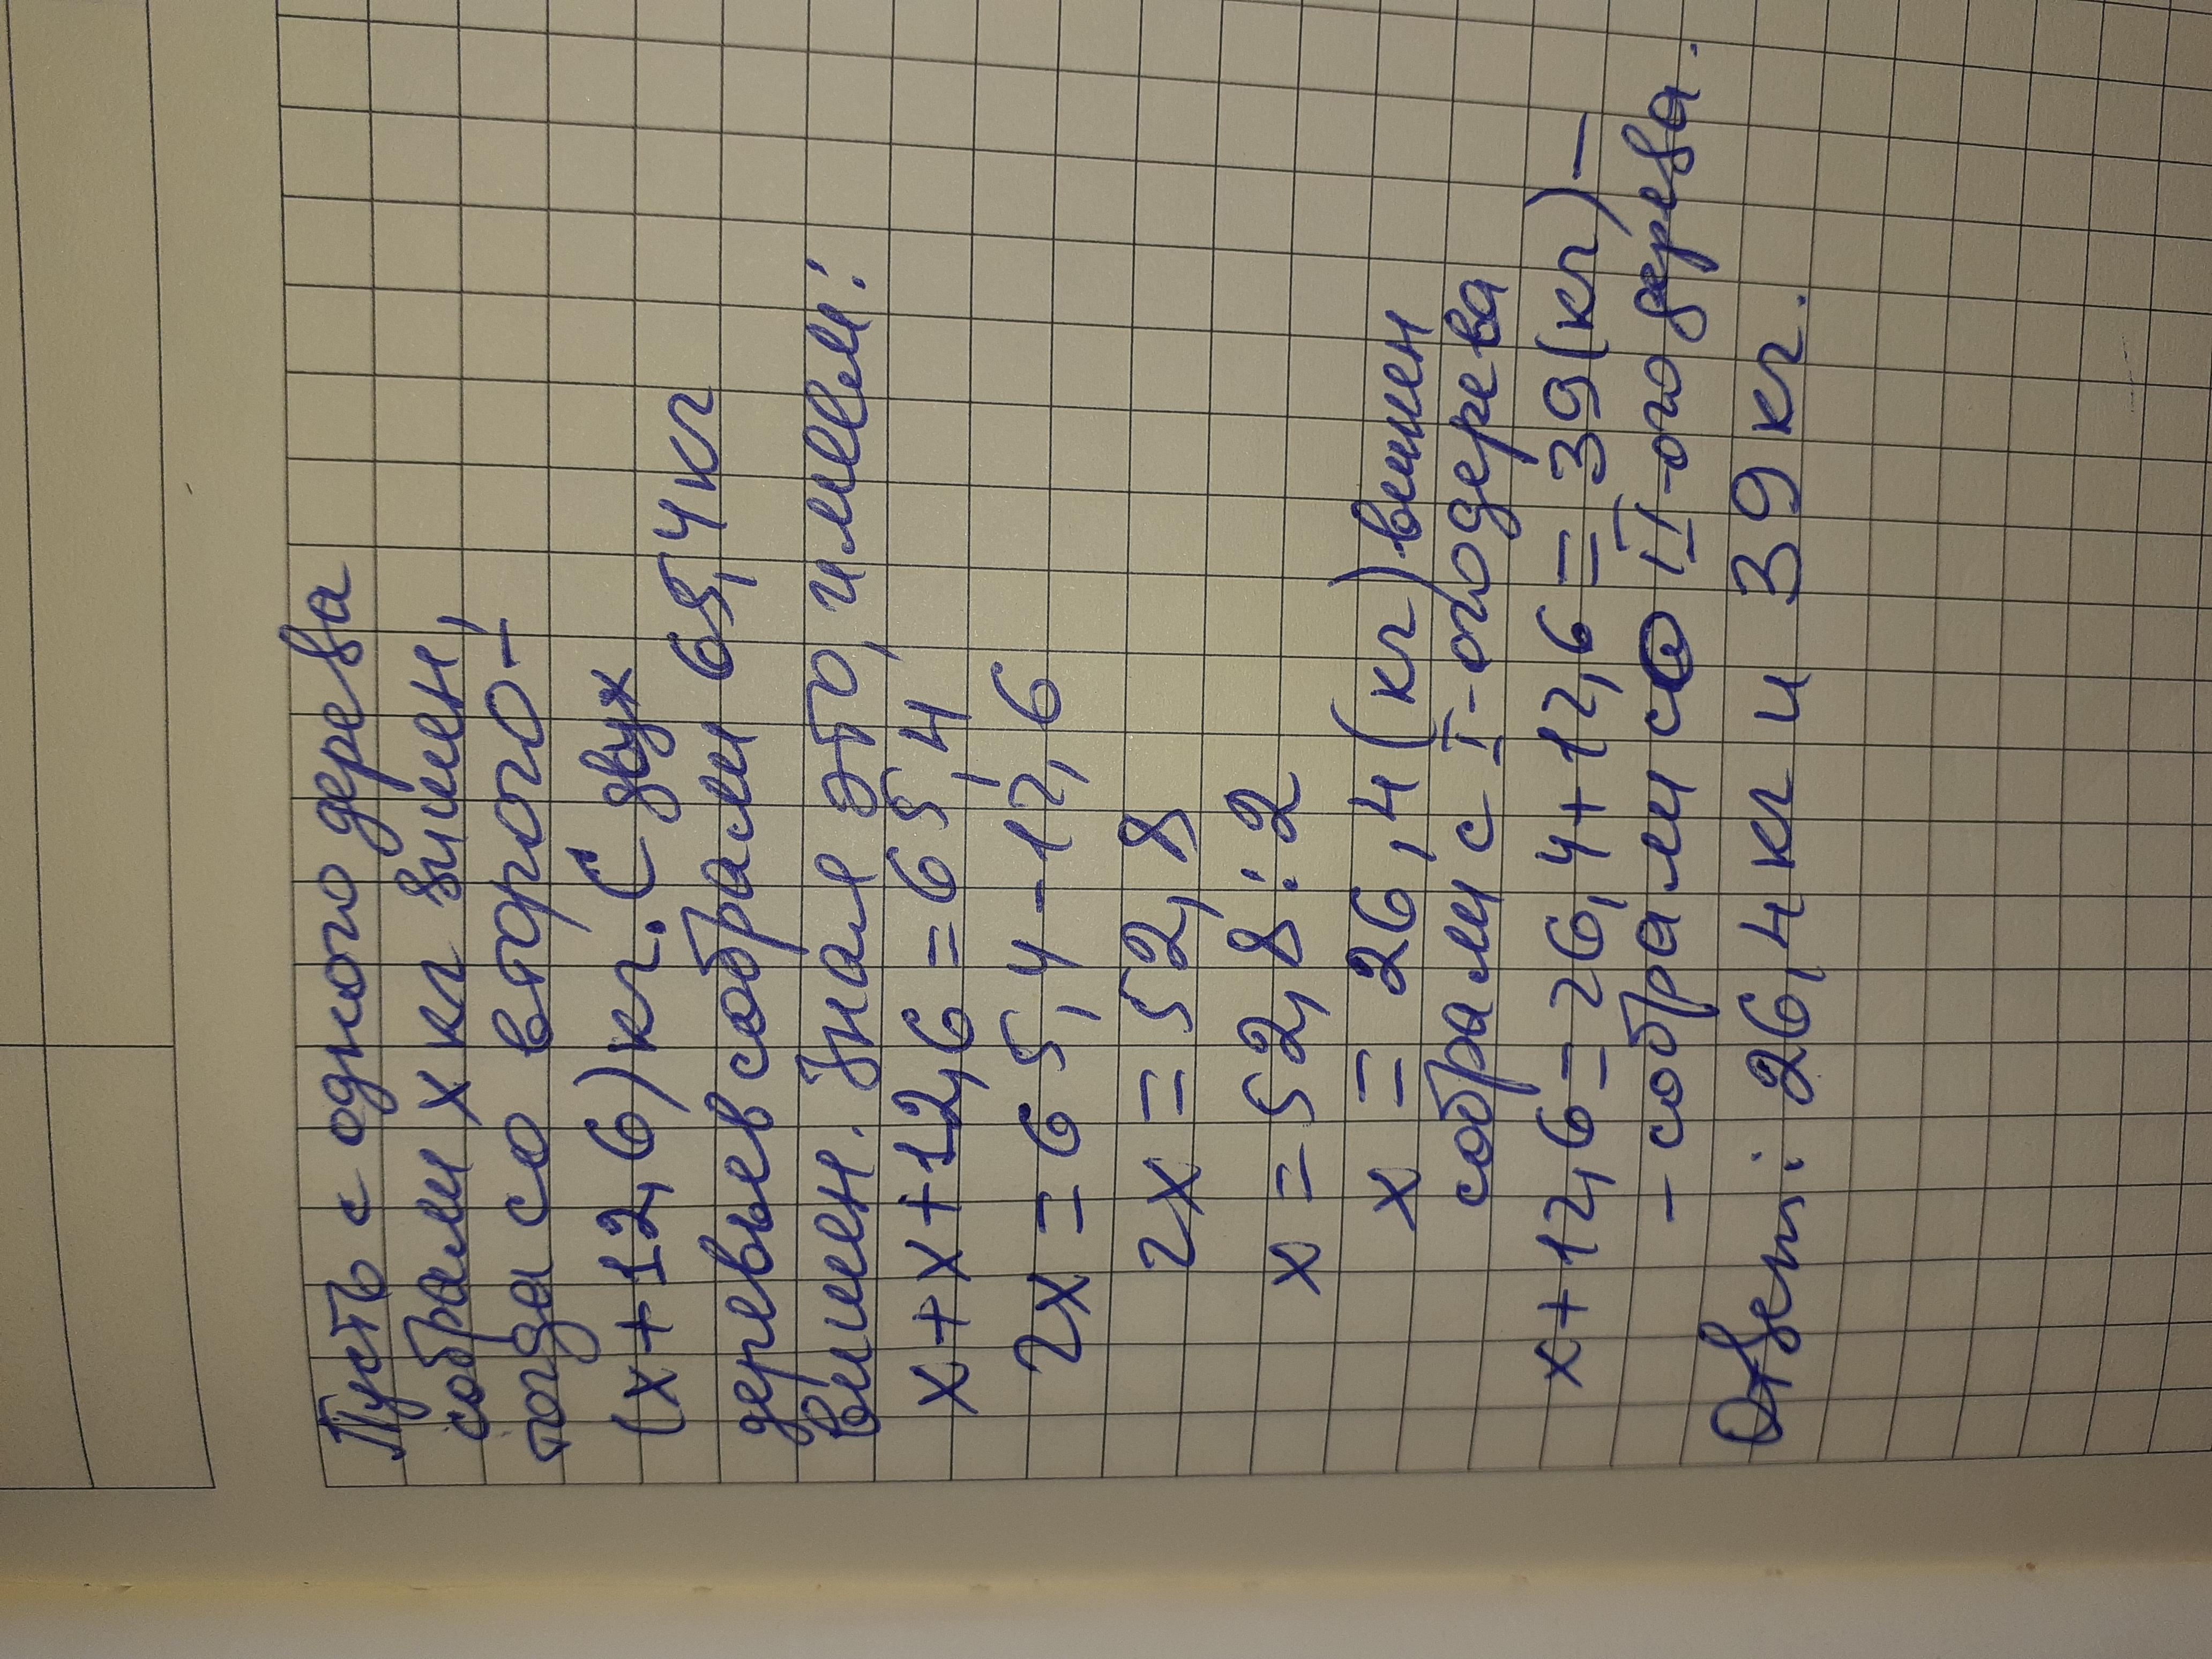 Пусть с одного дерева
собрали x кг вишен,
тогда со второго -
(x+12,6) кг. С двух
деревьев собрали 65,4 кг
вишен. Зная это, имеем:
x+x+12,6=65,4
2x=65,4-12,6
2x=52,8
x=52,8:2
x=26,4(кг) вишен
собрали с I-ого дерева
x+12,6=26,4+12,6=39(кг)-
- собрали со II-ого дерева.
Ответ: 26,4 кг и 39 кг.